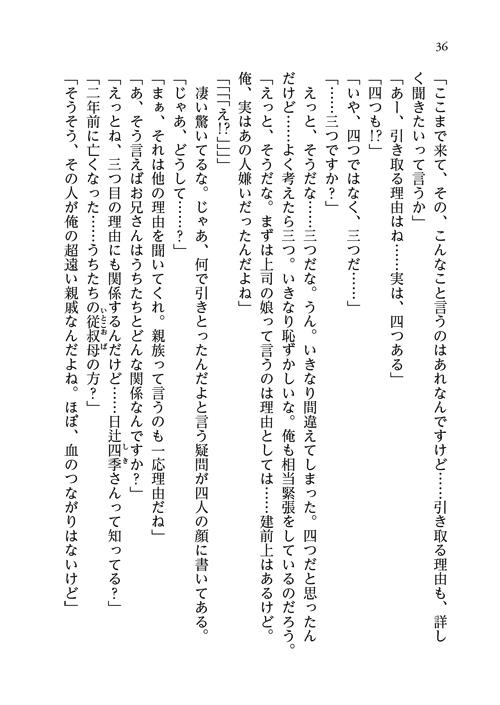 36
「ここまで来て、その、こんなこと言うのはあれなんですけど……引き取る理由も、詳し
く聞きたいって言うか」
「あー、引き取る理由はね……実は、四つある」
「四つも!?」
「いや、四つではなく、三つだ……」
「……三つですか?」
えっと、そうだな……三つだな。うん。いきなり間違えてしまった。四つだと思ったん
だけど……よく考えたら三つ。いきなり恥ずかしいな。俺も相当緊張をしているのだろう。
「えっと、そうだな。まずは上司の娘って言うのは理由としては……建前上はあるけど。
俺、実はあの人嫌いだったんだよね」
「「「「え!?」」」」
凄い驚いてるな。じゃあ、何で引きとったんだよと言う疑問が四人の顔に書いてある。
「じゃあ、どうして……?」
「まぁ、それは他の理由を聞いてくれ。親族って言うのも一応理由だね」
「あ、そう言えばお兄さんはうちたちとどんな関係なんですか?」
「えっとね、三つ目の理由にも関係するんだけど……日辻四季さんって知ってる?」
しき
「二年前に亡くなった……うちたちの従叔母の方?」
いとこおば
「そうそう、その人が俺の超遠い親戚なんだよね。ほぼ、血のつながりはないけど」